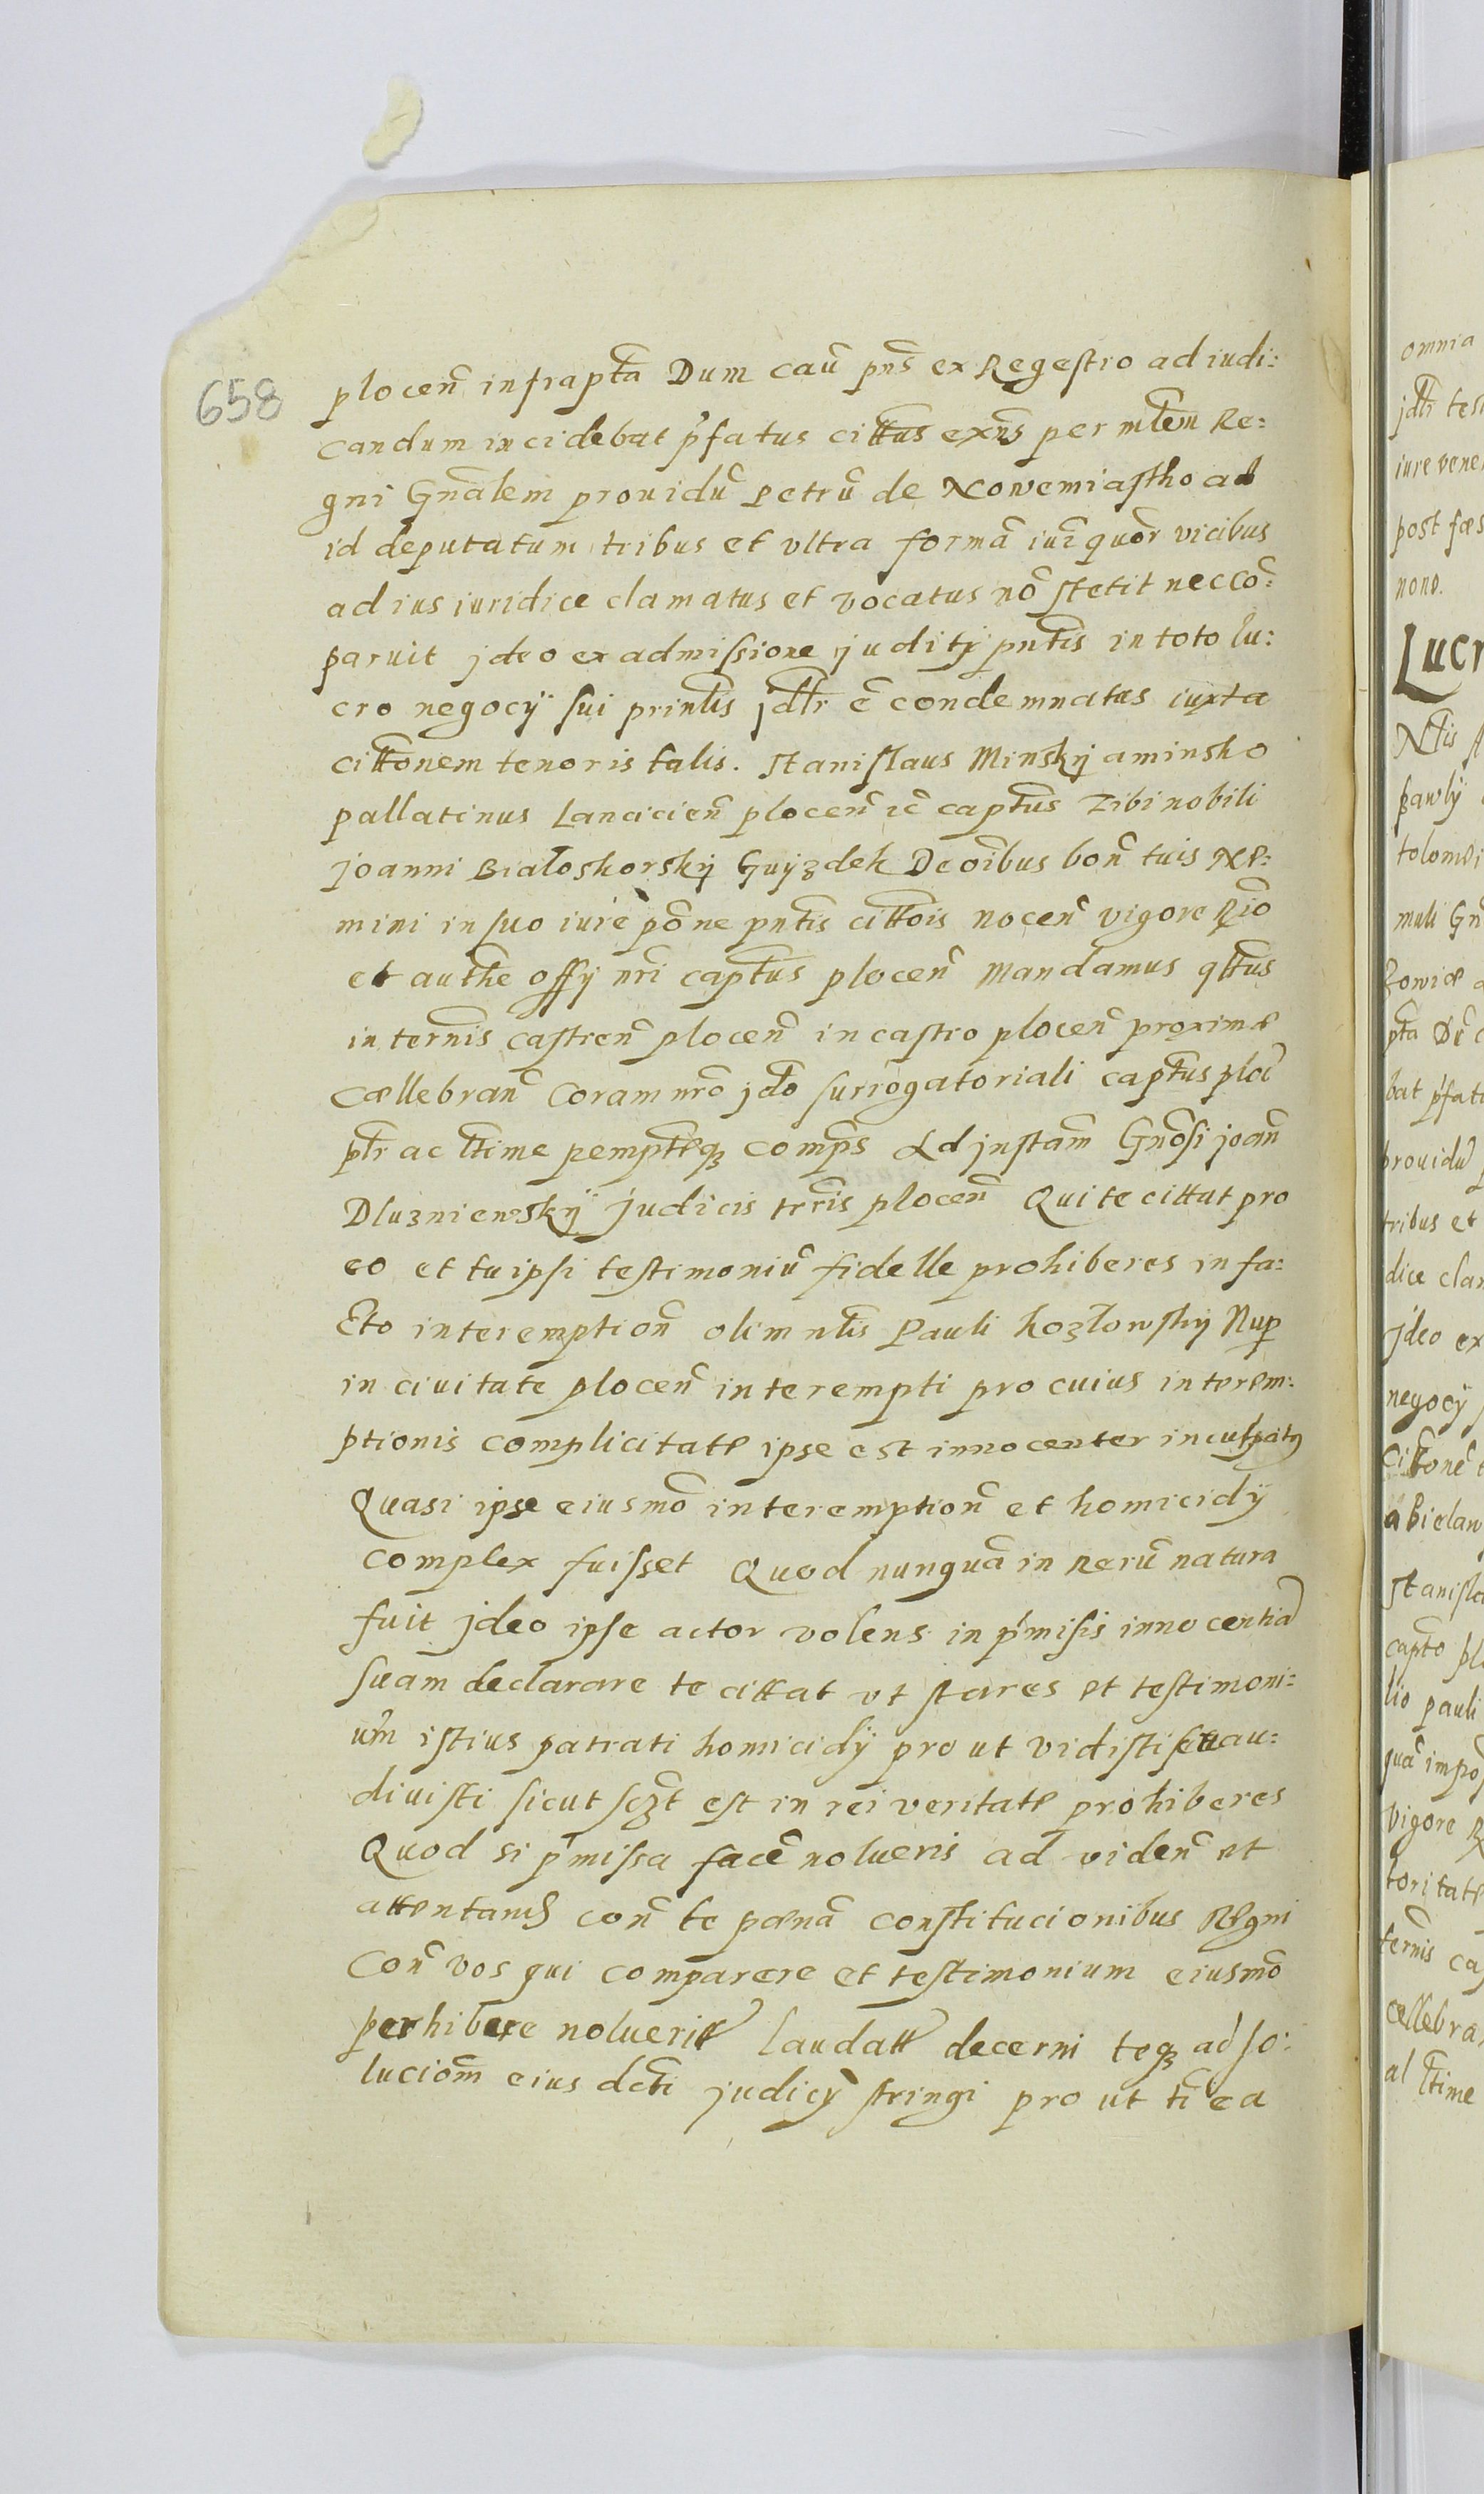 658
plocen̄ infrapt̄a Dum cau᷃ pn̄s ex Regestro ad iudi:
candum incidebat p̄fatus cittus exn̄s per mlt̄em Re:
gni Gn̄alem prouidu᷃ Petru᷃ de Nowemiastho ad
id deputatum tribus et vltra forma᷃ iur̄ quor̄ vicibus
ad ius iuridice clamatus et vocatus no᷃ stetit nec co᷃:
paruit jdeo ex admissione juditÿ pnt̄is in toto lu:
cro negocÿ sui prin̄lis jdt̄r ē condemnatus iuxta
citt̄onem tenoris talis. Stanislaus Minskÿ a minsko
pallatinus Lancicien̄ plocen̄ zc̄ capt̄us Tibi nobili
Joanni Bialoskorskÿ Guÿzdek De oībus bon̄ tuis Ne:
mini in suo iure po᷃ne pnt̄is citt̄ois nocen̄ vigore Rīo
et auth̄e offÿ nr̄i capt̄us plocen̄ Mandamus qtt̄us
in tern̄is castren̄ plocen̄ in castro plocen̄ proxime
cœllebran̄ Coram nr̄o jd̄o surrogatoriali capt̄us ploc̄
pt̄r ac lt̄ime pempt̄eqȝ comp̄s Ad jnstam̄ Gn̄osi joan̄
Dluzniewskÿ Judicis trr̄is plocen̄ Qui te cittat pro
eo et tu ipsi testimoniu᷃ fidelle prohiberes in fa:
cto interemption̄ olim nl̄is Pauli Kozlowskÿ Nup̄
in ciuitate plocen̄ interempti pro cuius interem:
ptionis complicitate ipse est innocenter inculpatꝰ
Quasi ipse eiusmo᷃ interemption̄ et homicidÿ
complex fuisset Quod nunqua᷃ in Reru᷃ natura
fuit Jdeo ipse actor volens in p̄misis innocentia᷃
suam declarare te cittat vt stares et testimoni:
um istius patrati homicidÿ pro ut vidisti seu au:
diuisti sicut sczt̄ est in rei veritate prohiberes
Quod si p̄missa face᷃ nolueris ad viden̄ et
attentand̄ con̄ te pœna᷃ constitucionibus Regni
Con̄ vos qui comparere et testimonium eiusmo᷃
perhibere noluerit laudatt decerni teqȝ ad so:
luciom̄ eius dct̄i judicÿ stringi pro ut tī ea
omnia
jdt̄r tes
iure vene
post fœs
nono.
Lucr
Nl̄is
pawlÿ
tolomei
muli Gn̄
pt̄a
bat p̄fat
prouidu᷃
tribus et
dice cla
Jdeo ex
negocÿ
Citt̄one᷃
a Bielaw
Stanisla
capt̄o pl
lio pauli
qua᷃ impo
vigore R
toritate
tern̄is ca
cellebra
al lt̄ime